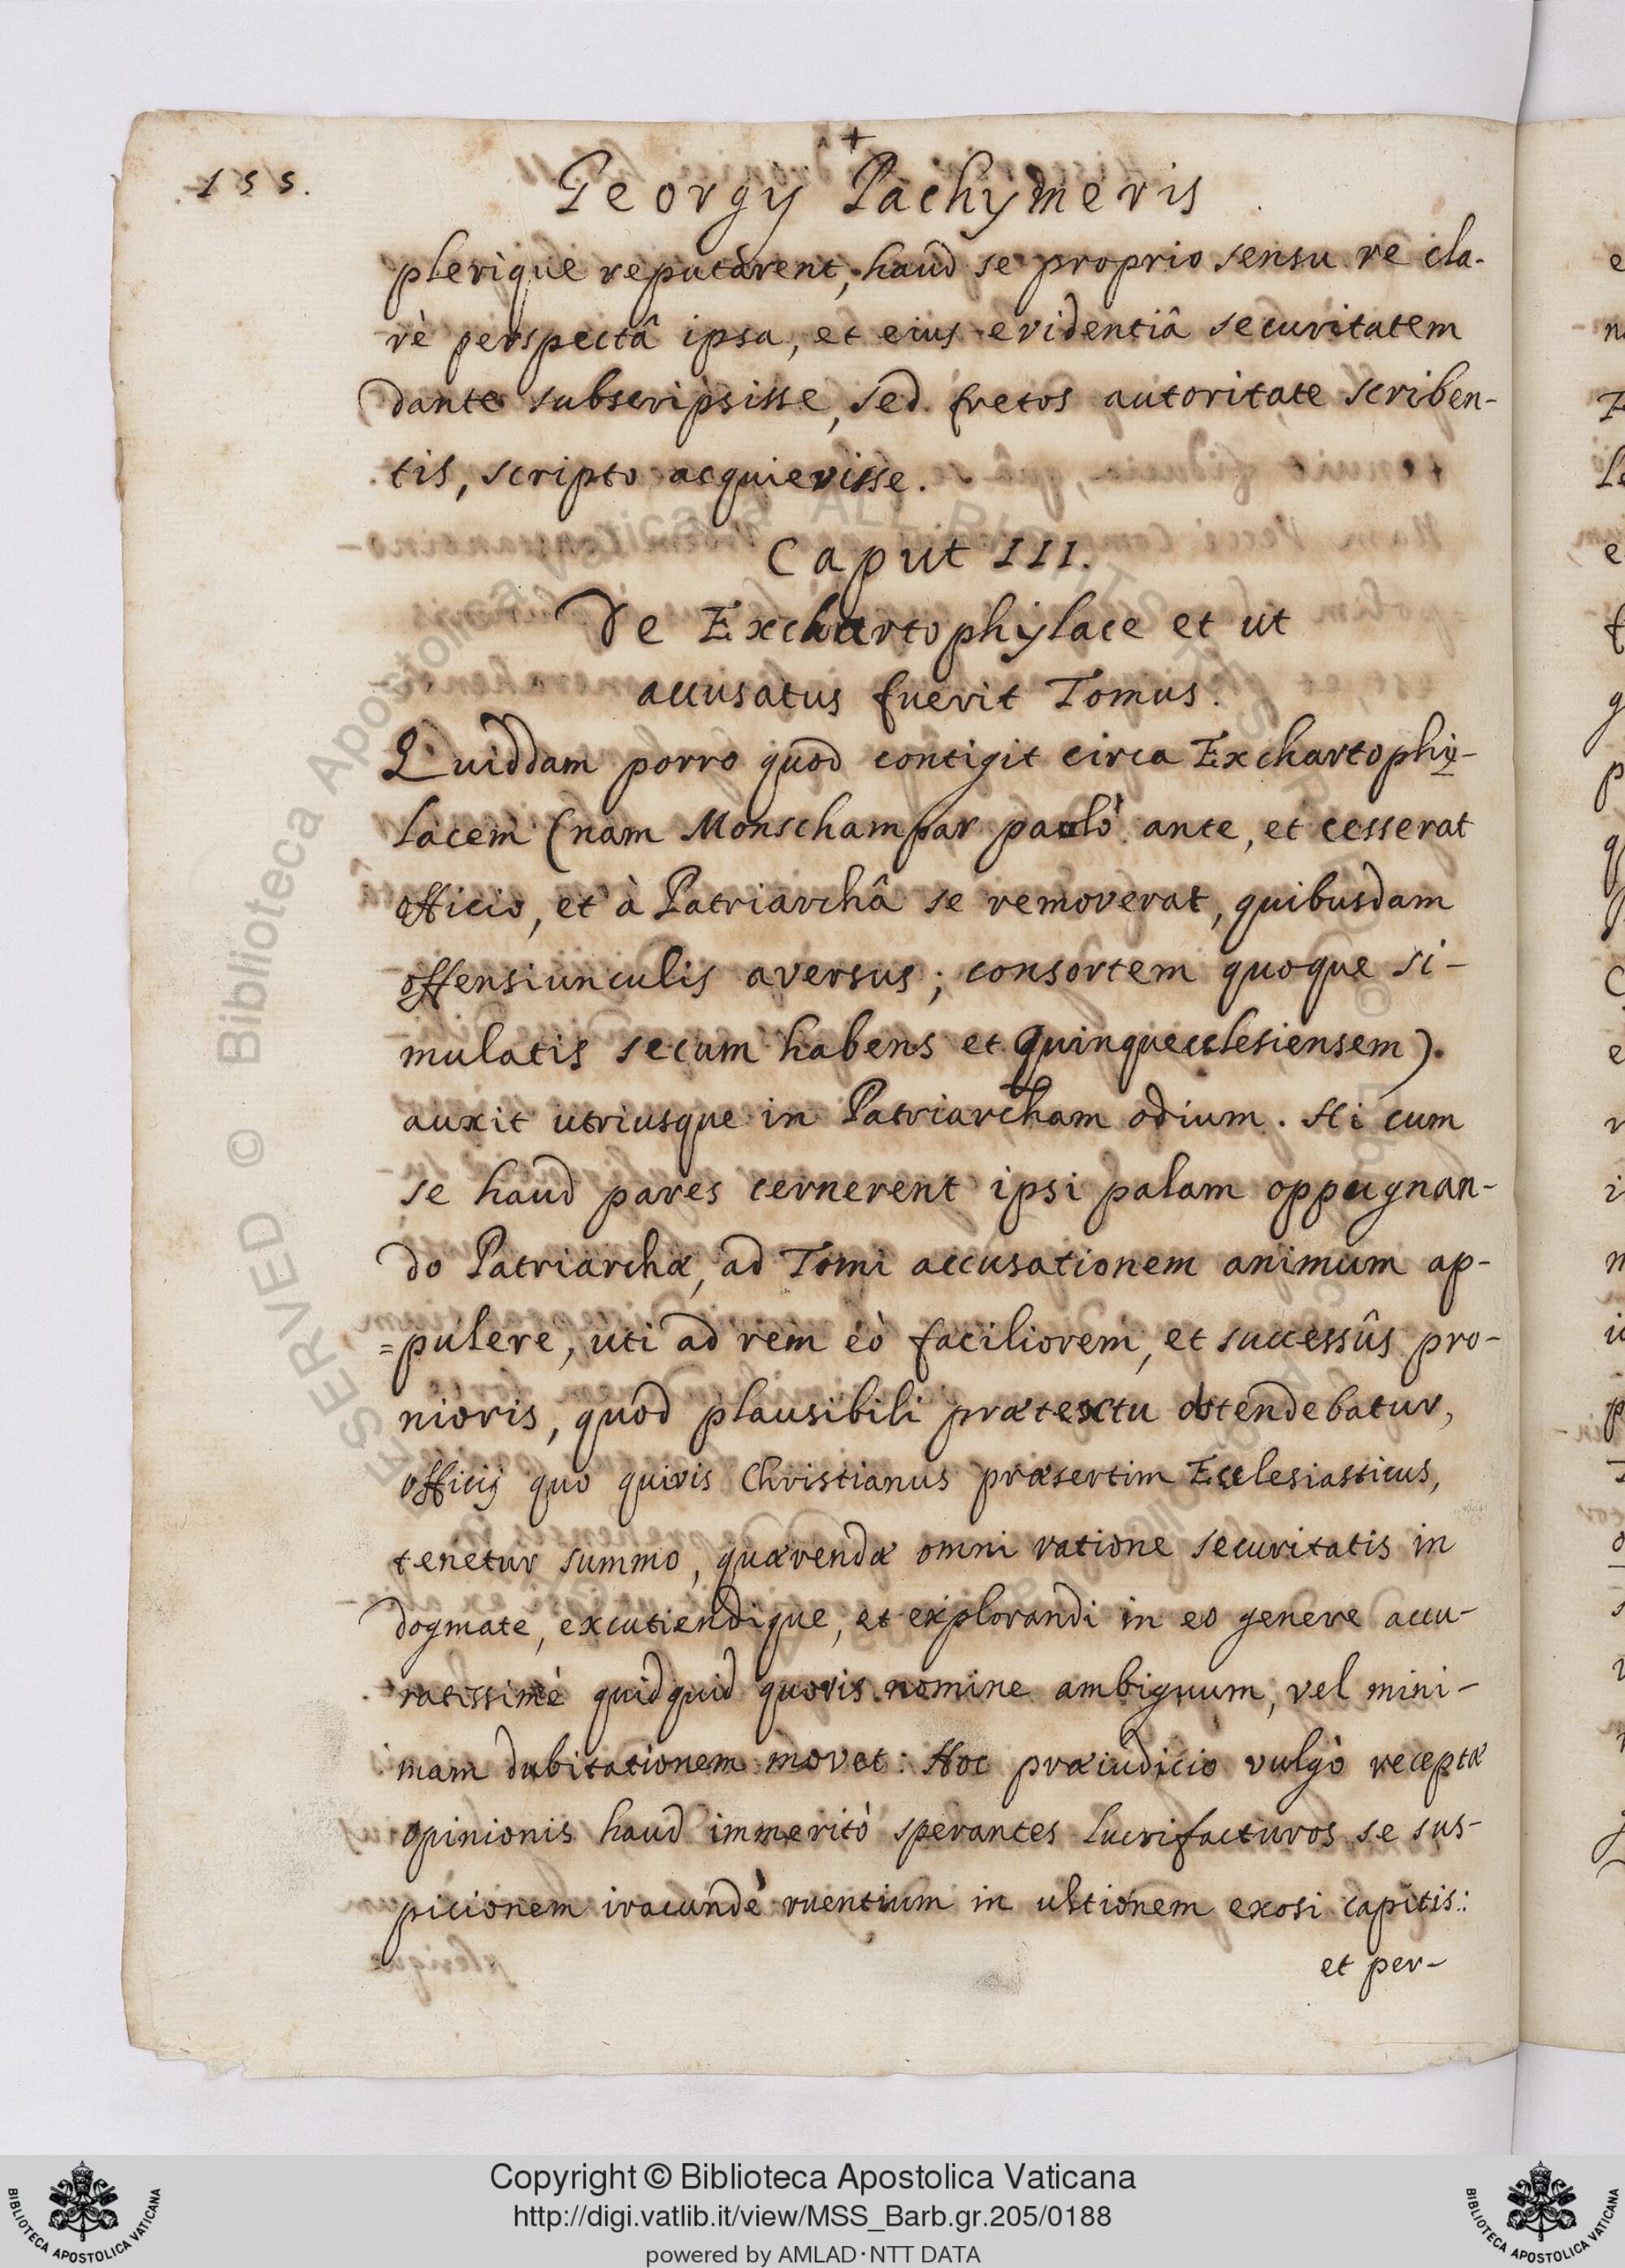 +
155.
Georgij Pachymeris
plerique reputarent, haud se proprio sensu re cla-
rè perspectâ ipsa, et eius evidentiâ securitatem
dante subscripsisse, sed fretos autoritate scriben-
tis, scripto acquievisse.
Caput III.
De Exchartophylace et ut
accusatus fuerit Tomus.
Quiddam porro quod contigit circa Exchartophy-
lacem (nam Monschampar paulò ante, et cesserat
officio, et à Patriarchâ se removerat, quibusdam
offensiunculis aversus; consortem quoque si-
mulatis secum habens et Quinqueecclesiensem).
auxit utriusque in Patriarcham odium. Hi cum
se haud pares cernerent ipsi palam oppugnan-
do Patriarchæ, ad Tomi accusationem animum ap-
=pulere, uti ad rem eò faciliorem, et successûs pro-
nioris, quod plausibili prætextu ostendebatur,
officij quo quivis Christianus præsertim Ecclesiasticus,
tenetur summo, quærendæ omni ratione securitatis in
dogmate, excutiendique, et explorandi in eo genere accu-
ratissimè quidquid quovis nomine ambiguum, vel mini-
mam dubitationem movet: Hoc præiudicio vulgò receptæ
opinionis haud immeritò sperantes lucrifacturos se sus-
picionem iracundè ruentium in ultionem exosi capitis:
et per-
Copyright © Biblioteca Apostolica Vaticana
http://digi.vatlib.it/view/MSS_Barb.gr.205/0188
powered by AMLAD·NTT DATA
BIBLIOTECA APOSTOLICA VATICANA
BIBLIOTECA APOSTOLICA VATICANA